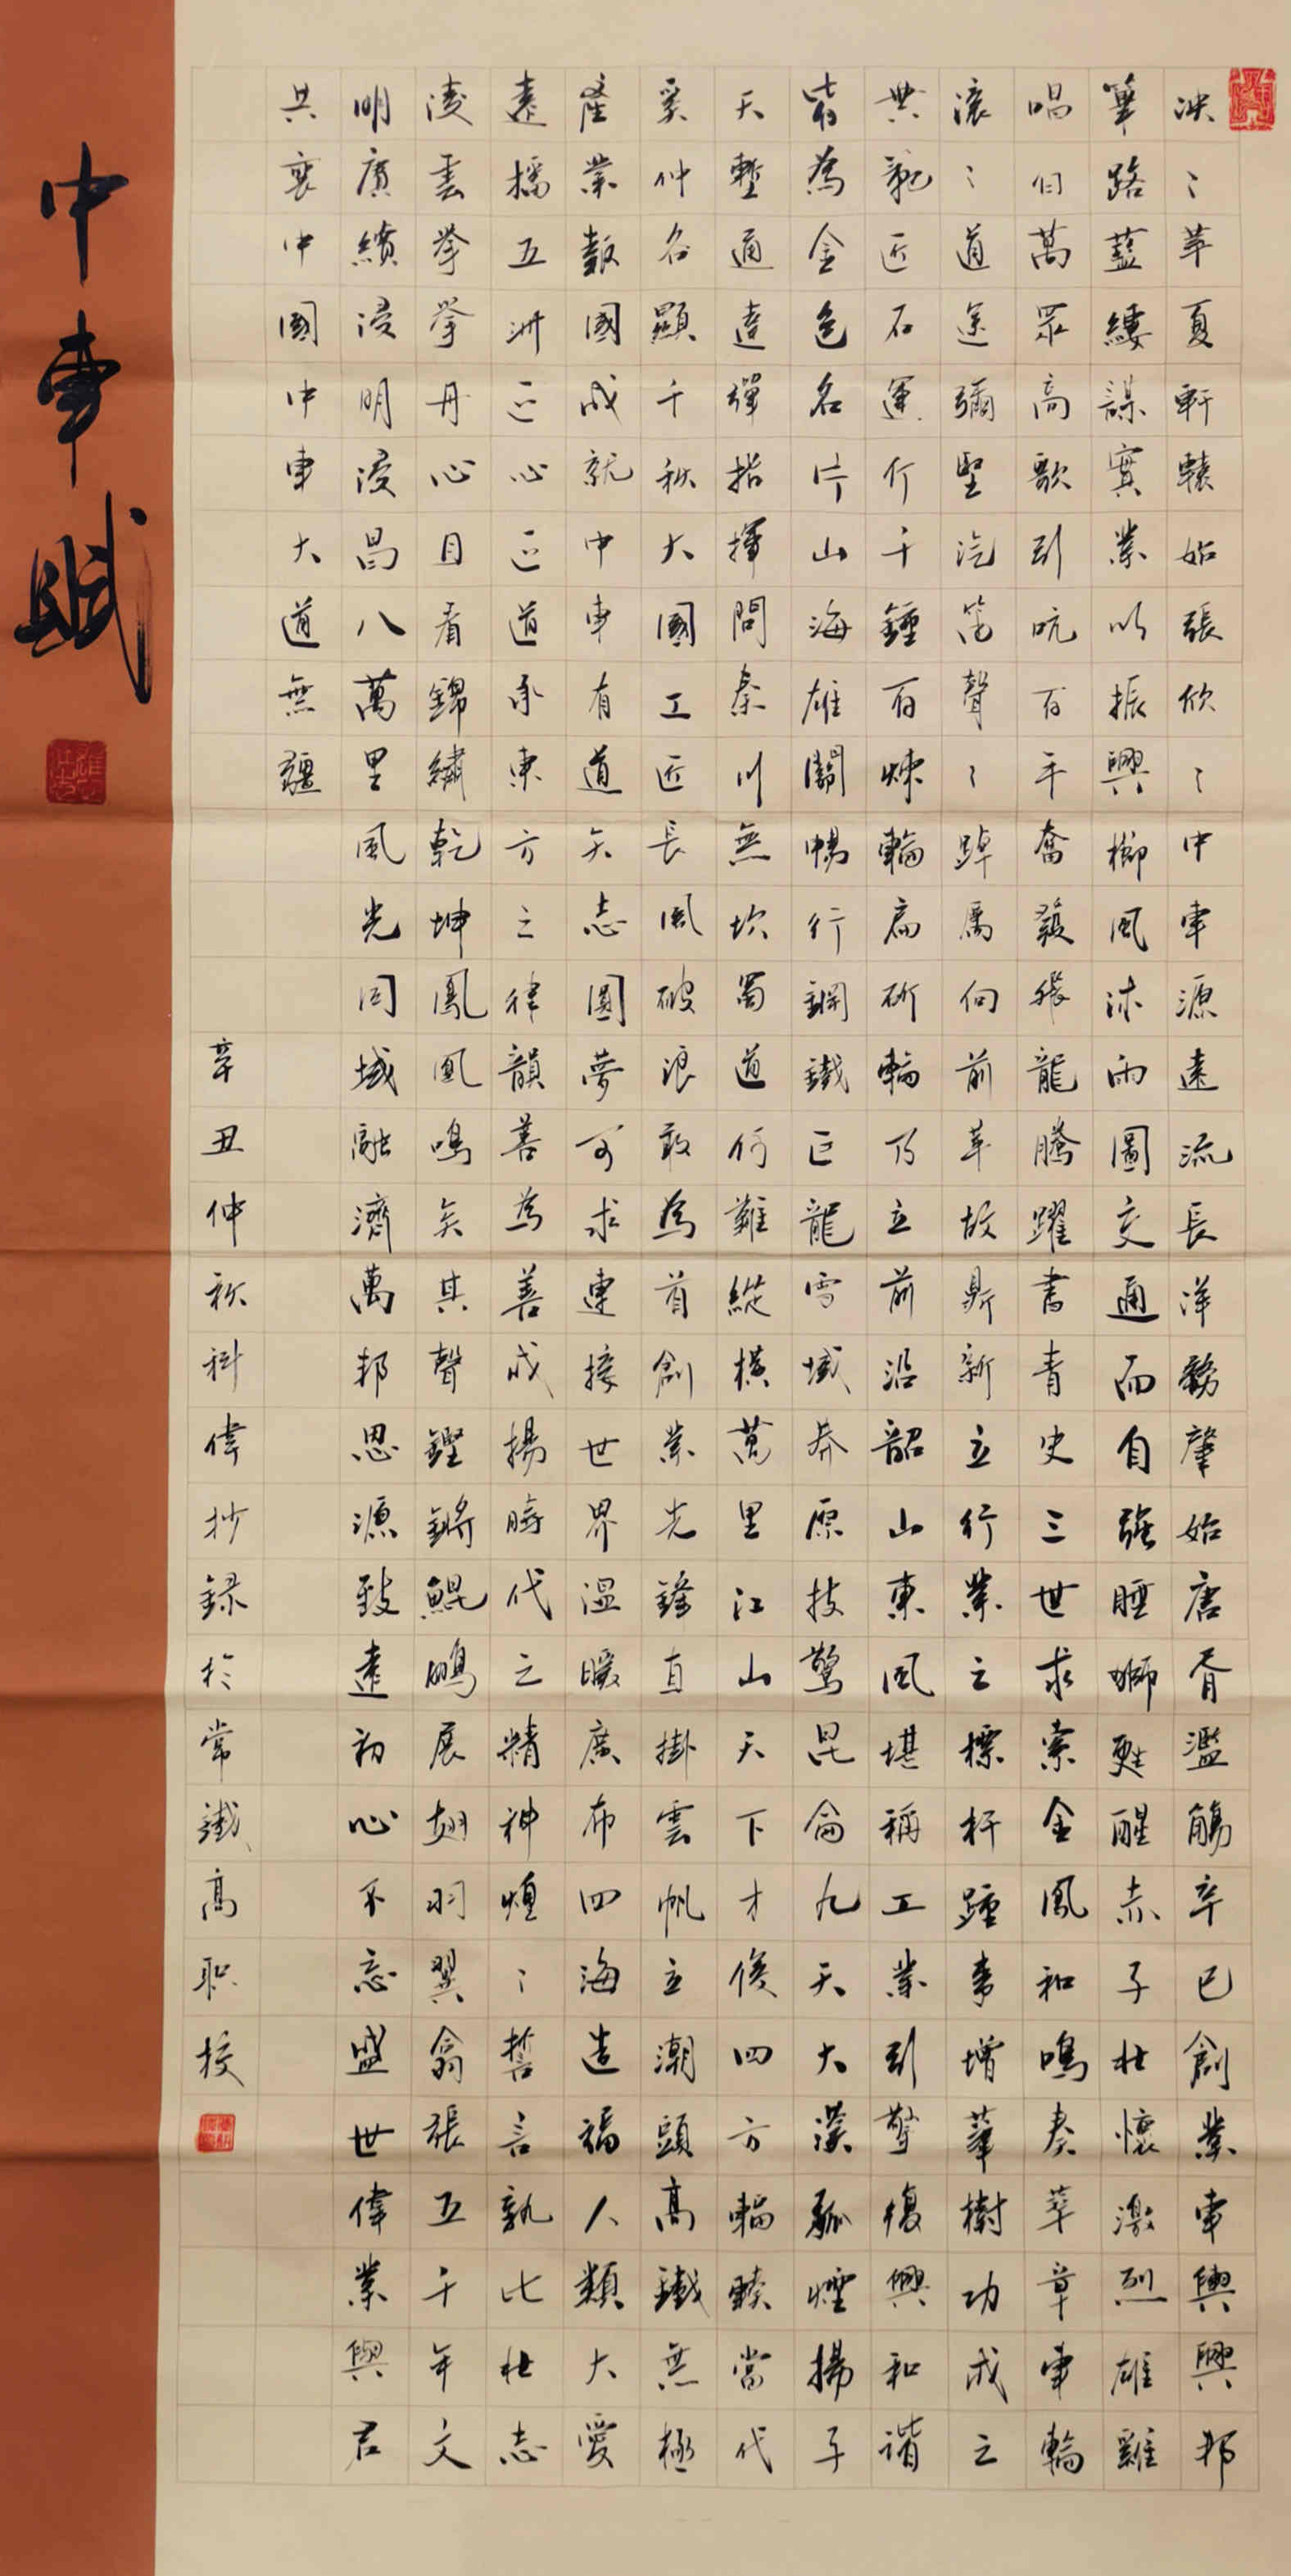 泱〻華夏軒轅始張欣〻中車源遠流長洋務肇始唐胥濫觴辛巳創業車輿興邦
篳路藍縷謀實業以振興櫛風沐雨圖交通而自強睡獅甦醒赤子壯懷激烈雄雞
唱白萬眾高歌引吭百年奮發張龍騰躍書青史三世求索金鳳和鳴奏華章車輪
滾〻道途彌堅汽笛聲〻踔厲向前革故鼎新立行業之標杆踵事增華樹功成之
典範匠石運斤千錘百煉輪扁斫輪乃立前沿韶山東風堪稱工業引擎復興和諧
皆為金色名片山海雄關暢行鋼鐵巨龍雪域莽原技驚昆侖九天大漠孤煙揚子
天塹通達彈指揮間秦川無坎蜀道何難縱橫萬里江山天下才俊四方輻輳當代
奚仲名顯千秋大國工匠長風破浪敢為首創業先鋒直掛雲帆立潮頭高鐵無極
產業報國成就中車有道矢志圓夢可求連接世界溫暖廣布四海造福人類大愛
遠播五洲正心正道承東方之律韻善為善成揚時代之精神煌〻誓言執此壯志
淩雲拳拳丹心且看錦繡乾坤鳳凰鳴矣其聲鏗鏘鯤鵬展翅羽翼翕張五千年文
明賡續浸明浸昌八萬里風光同域融濟萬邦思源致遠初心不忘盛世偉業與君
共襄中國中車大道無疆
辛丑仲秋科偉抄錄於常鐵高職校
中車賦